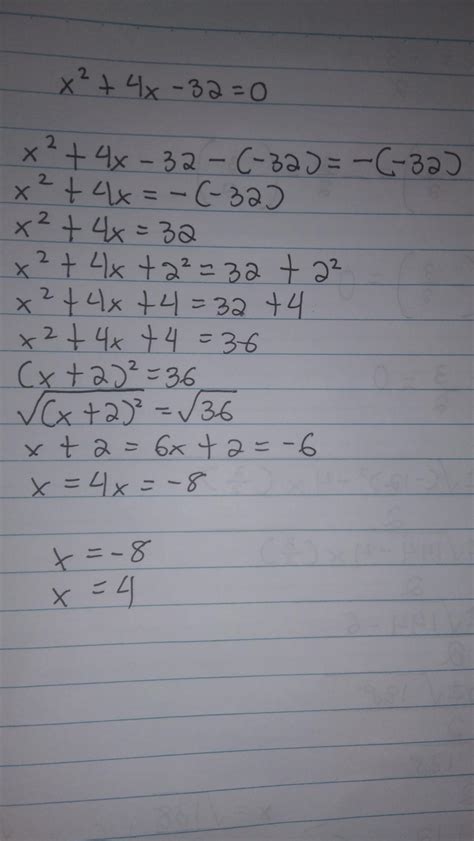 x² + 4x - 32 = 0
x² + 4x - 32 - (-32) = -(-32)
x² + 4x = -(-32)
x² + 4x = 32
x² + 4x + 2² = 32 + 2²
x² + 4x + 4 = 32 + 4
x² + 4x + 4 = 36
(x + 2)² = 36
√(x + 2)² = √36
x + 2 = 6x + 2 = -6
x = 4x = -8
x = -8
x = 4